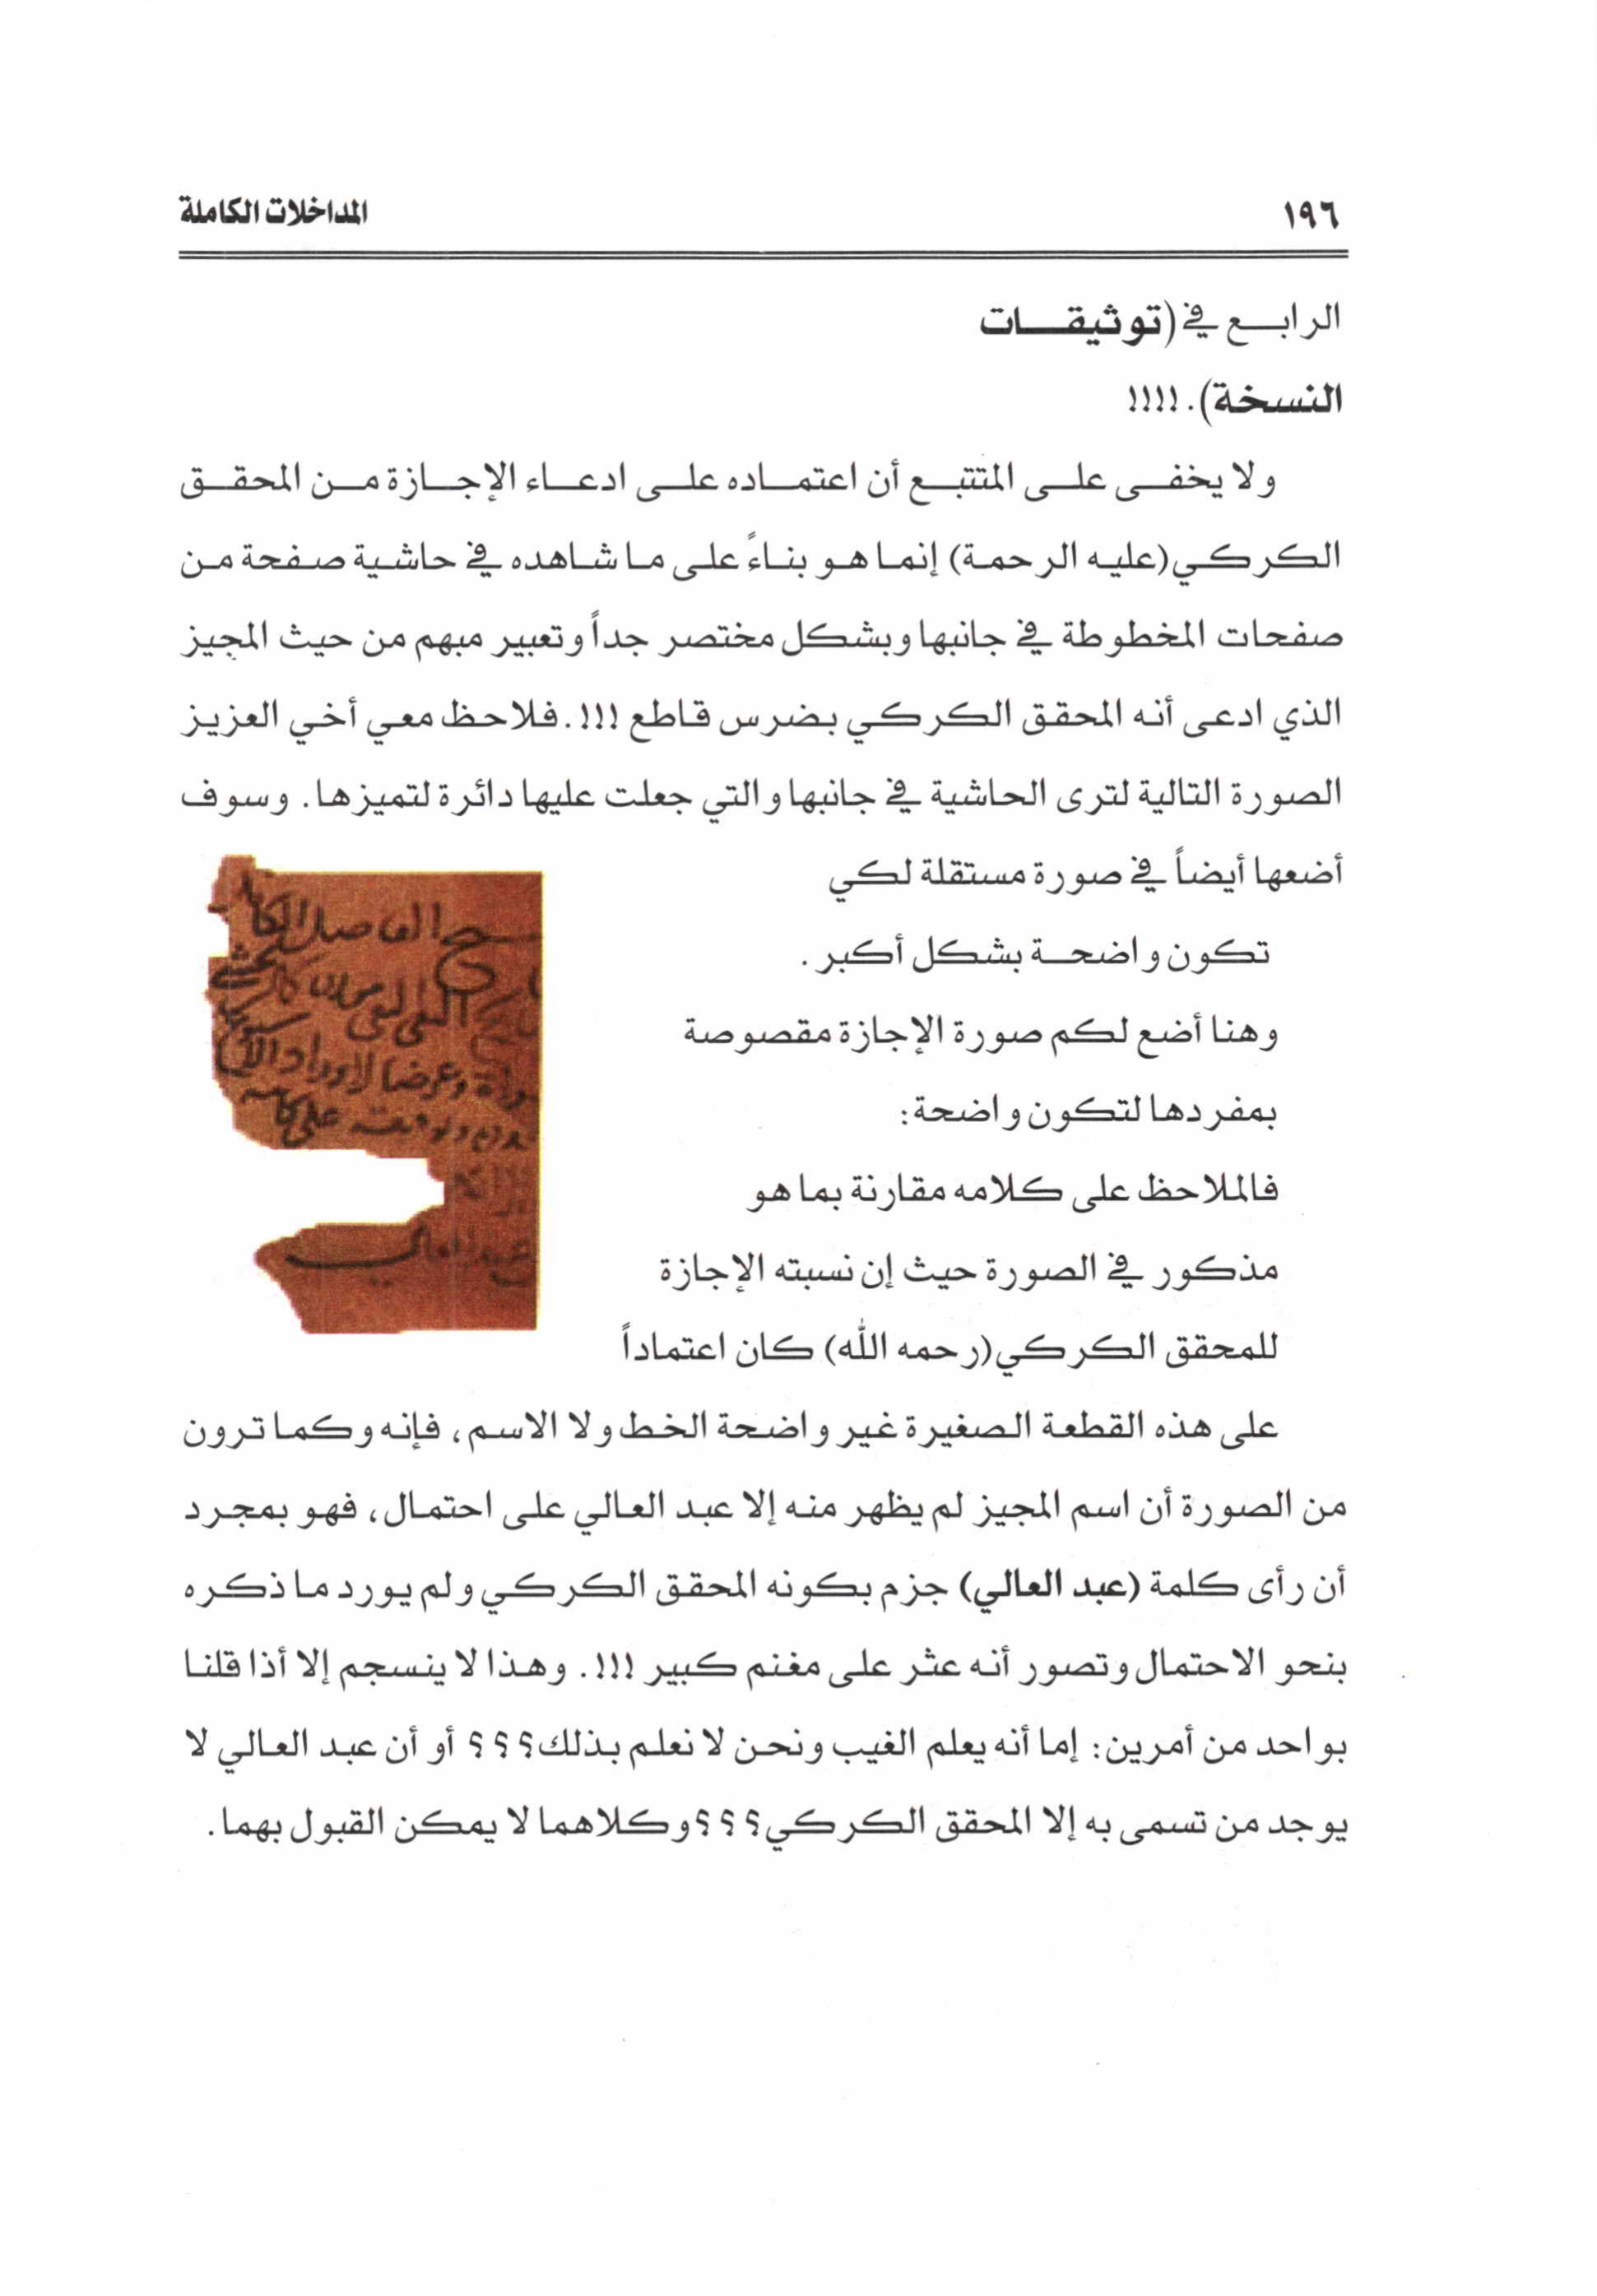 ١٩٦
المداخلات الكاملة
الرابع في (توثيقات
النسخة). !!!!
ولا يخفى على المتتبع أن اعتماده على ادعاء الإجازة من المحقق
الكركي (عليه الرحمة) إنما هو بناءً على ما شاهده في حاشية صفحة من
صفحات المخطوطة في جانبها وبشكل مختصر جداً وتعبير مبهم من حيث المجيز
الذي ادعى أنه المحقق الكركي بضرس قاطع !!!. فلاحظ معي أخي العزيز
الصورة التالية لترى الحاشية في جانبها والتي جعلت عليها دائرة لتميزها. وسوف
أضعها أيضاً في صورة مستقلة لكي
تكون واضحة بشكل أكبر.
وهنا أضع لكم صورة الإجازة مقصوصة
بمفردها لتكون واضحة:
فالملاحظ على كلامه مقارنة بما هو
مذكور في الصورة حيث إن نسبته الإجازة
للمحقق الكركي (رحمه الله) كان اعتماداً
على هذه القطعة الصغيرة غير واضحة الخط ولا الاسم، فإنه وكما ترون
من الصورة أن اسم المجيز لم يظهر منه إلا عبد العالي على احتمال، فهو بمجرد
أن رأى كلمة (عبد العالي) جزم بكونه المحقق الكركي ولم يورد ما ذكره
بنحو الاحتمال وتصور أنه عثر على مغنم كبير !!!. وهذا لا ينسجم إلا أذا قلنا
بواحد من أمرين: إما أنه يعلم الغيب ونحن لا نعلم بذلك؟؟؟ أو أن عبد العالي لا
يوجد من تسمى به إلا المحقق الكركي؟؟؟ وكلاهما لا يمكن القبول بهما.
الفاضل
على
عبد العالي